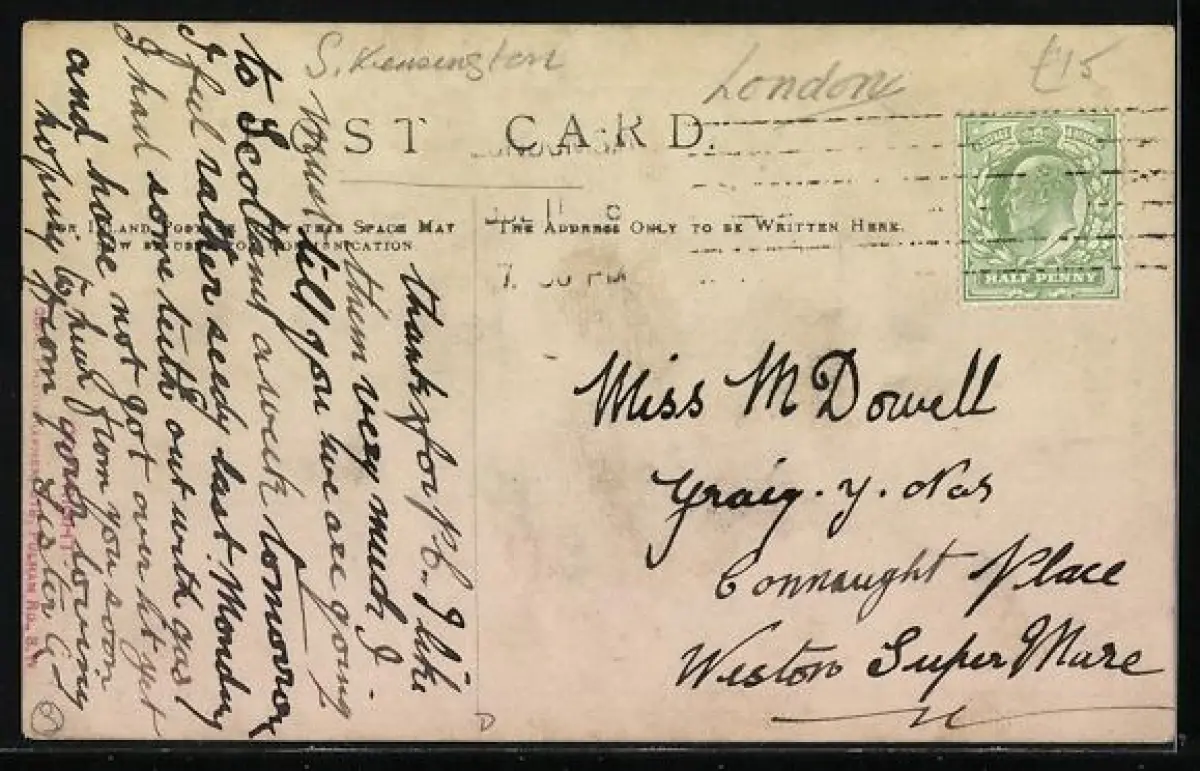 S. Kensington
London
£15
POST CARD.
FOR INLAND POSTAGE THIS SPACE MAY
NOW BE USED FOR COMMUNICATION
THE ADDRESS ONLY TO BE WRITTEN HERE.
7. 30 PM
HALF PENNY
thanks for p.c. I like
them very much I
must tell you we are going
to Scotland a week tomorrow
I feel rather seedy last Monday
I had some teeth out with gas
I have not got over it yet
and hoping to hear from you soon
from your loving
Sister G
Miss McDowell
Graig. y. Nos
Connaught Place
Weston Super Mare
FULHAM RD., S.W.